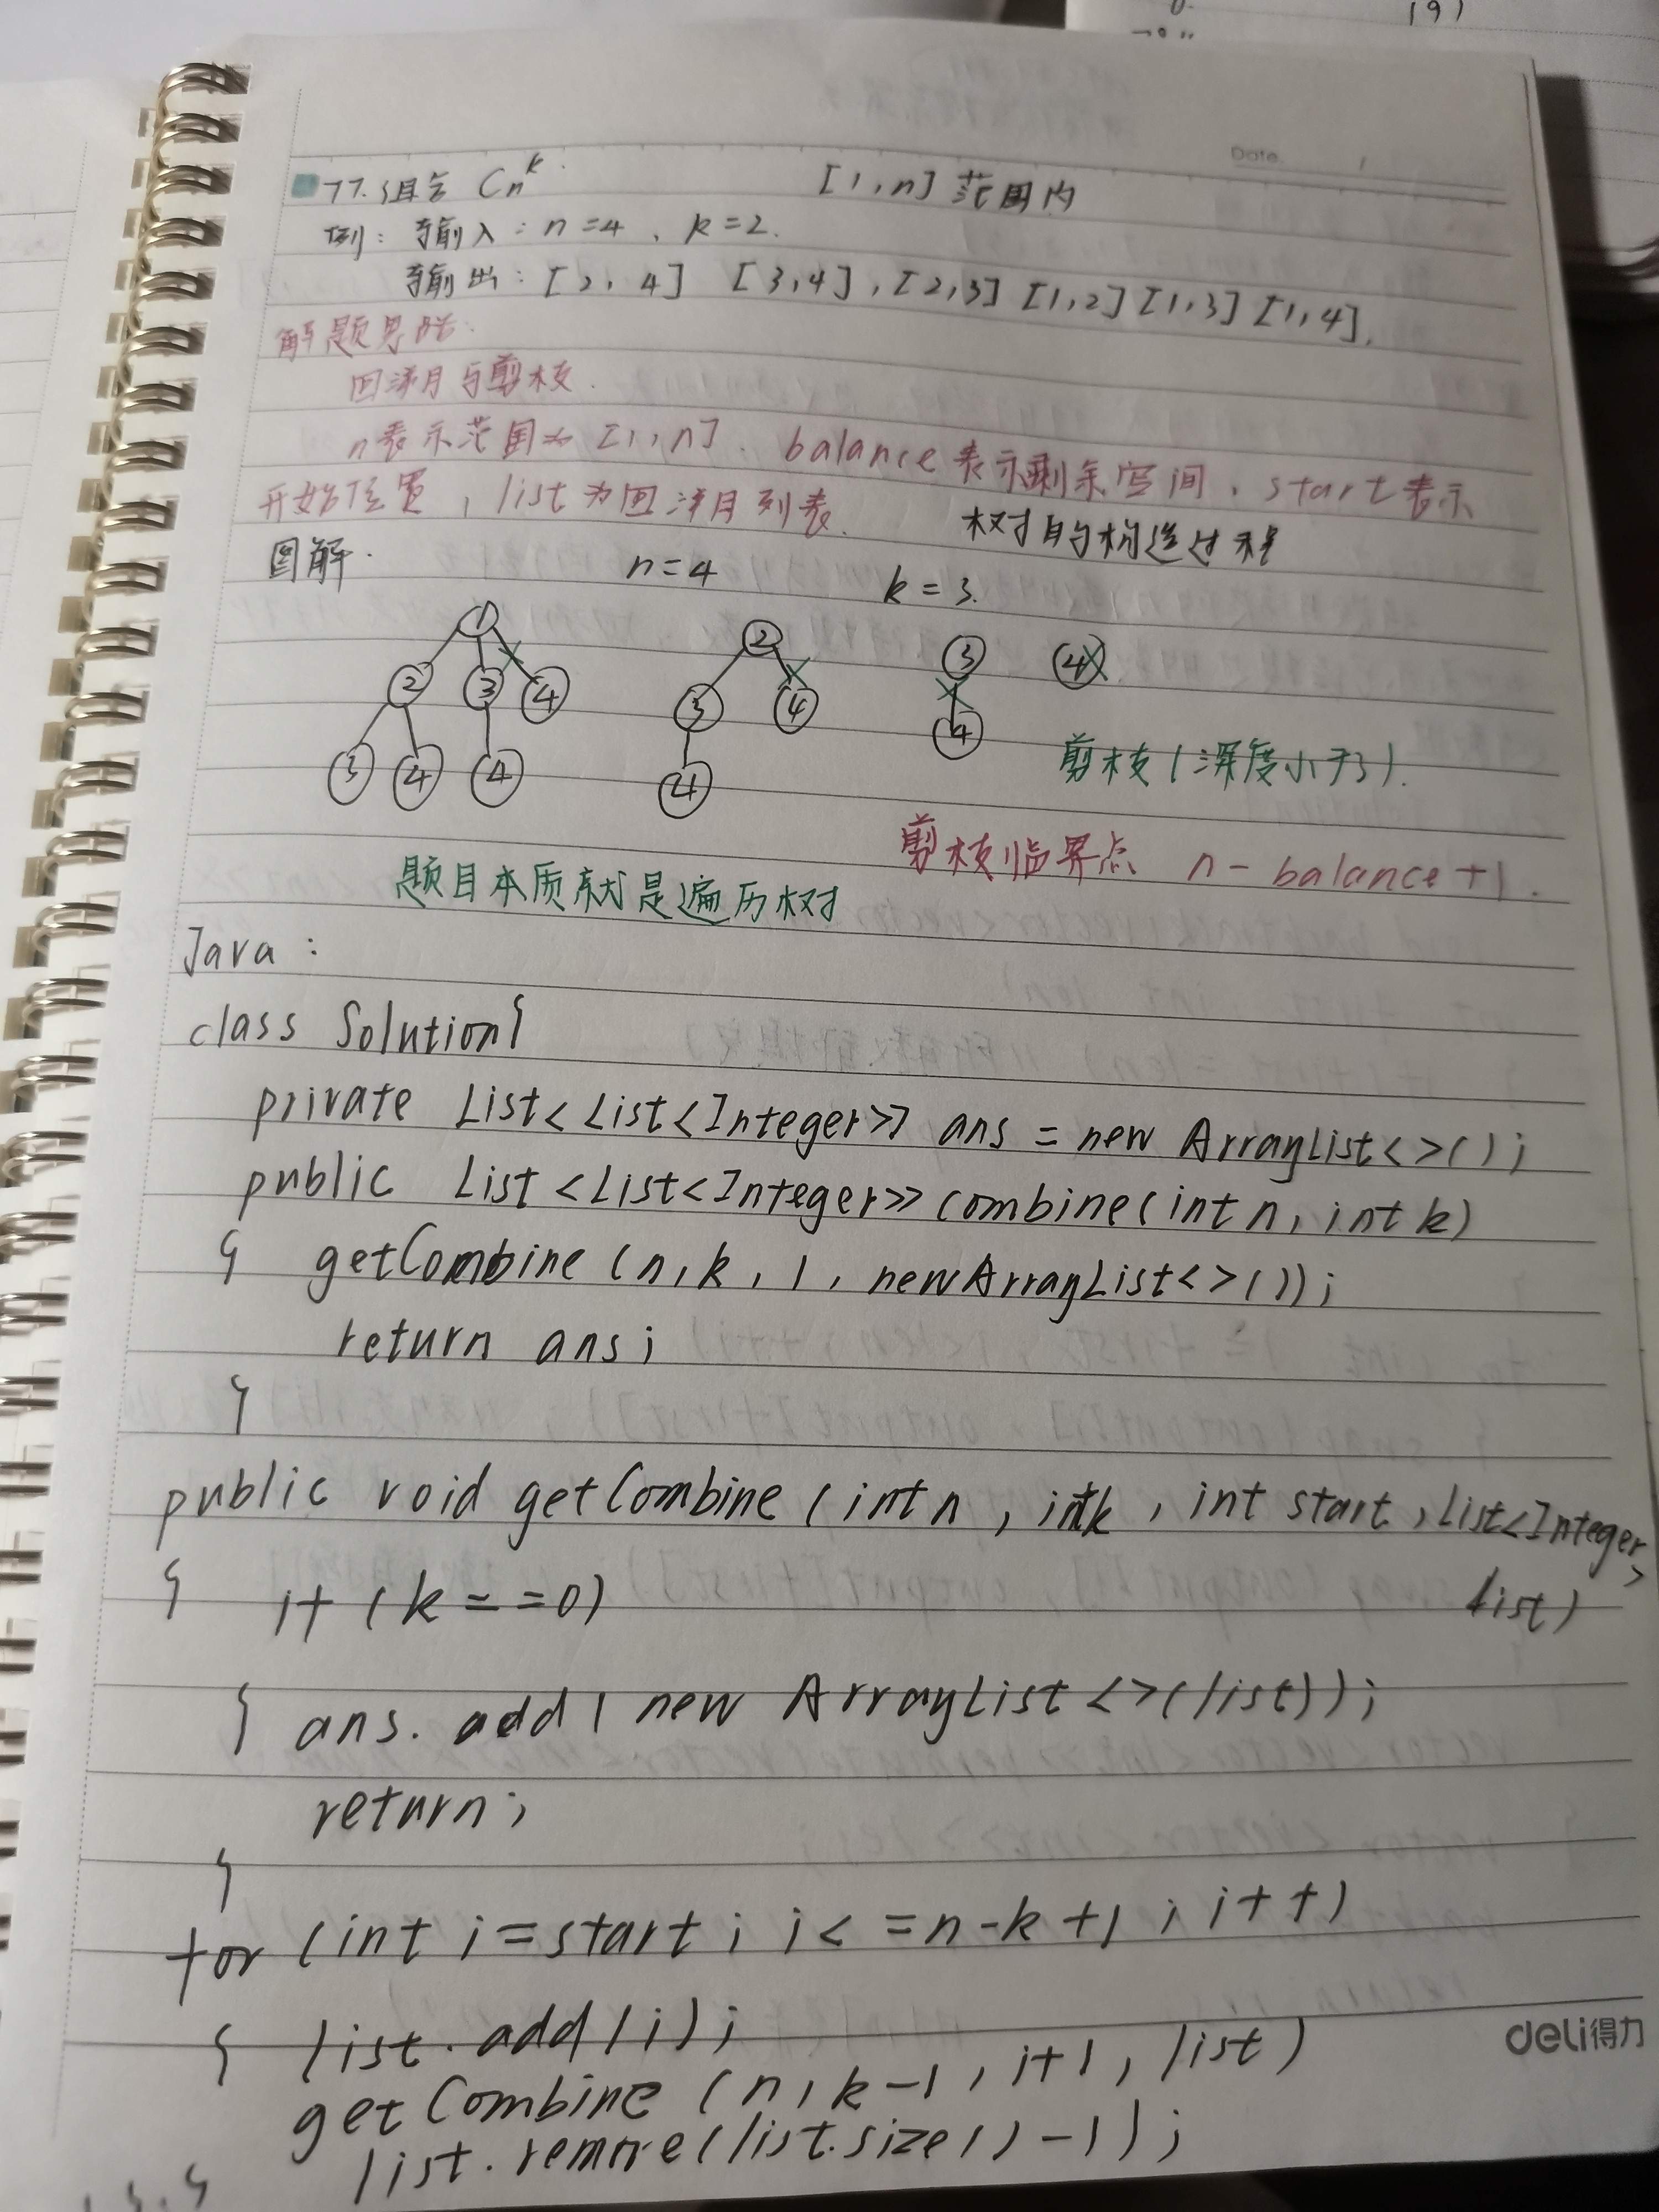 (9)
Date
77.组合 Cn^k [1,n] 范围内
例: 输入: n=4、k=2.
输出: [2, 4] [3,4],[2,3] [1,2] [1,3] [1,4].
解题思路:
回溯与剪枝.
n表示范围为 [1,n]、balance表示剩余空间、start表示
开始位置,list为回溯列表. 树的构造过程
图解. n=4 k=3.
1 2 3 4
2 3 4 3 4 4
3 4 4 4
剪枝(深度小于3).
剪枝临界点 n-balance+1.
题目本质就是遍历树
Java:
class Solution{
private List<List<Integer>> ans = new ArrayList<>();
public List<List<Integer>> combine(int n, int k)
{ getCombine (n, k, 1, new ArrayList<>());
return ans;
}
public void getCombine (int n, int k, int start, List<Integer>
{ if (k==0) list)
{ ans.add(new ArrayList<>(list));
return;
}
for (int i=start; i<=n-k+1; i++)
{ list.add(i);
getCombine (n, k-1, i+1, list)
list.remove(list.size()-1);
deli得力